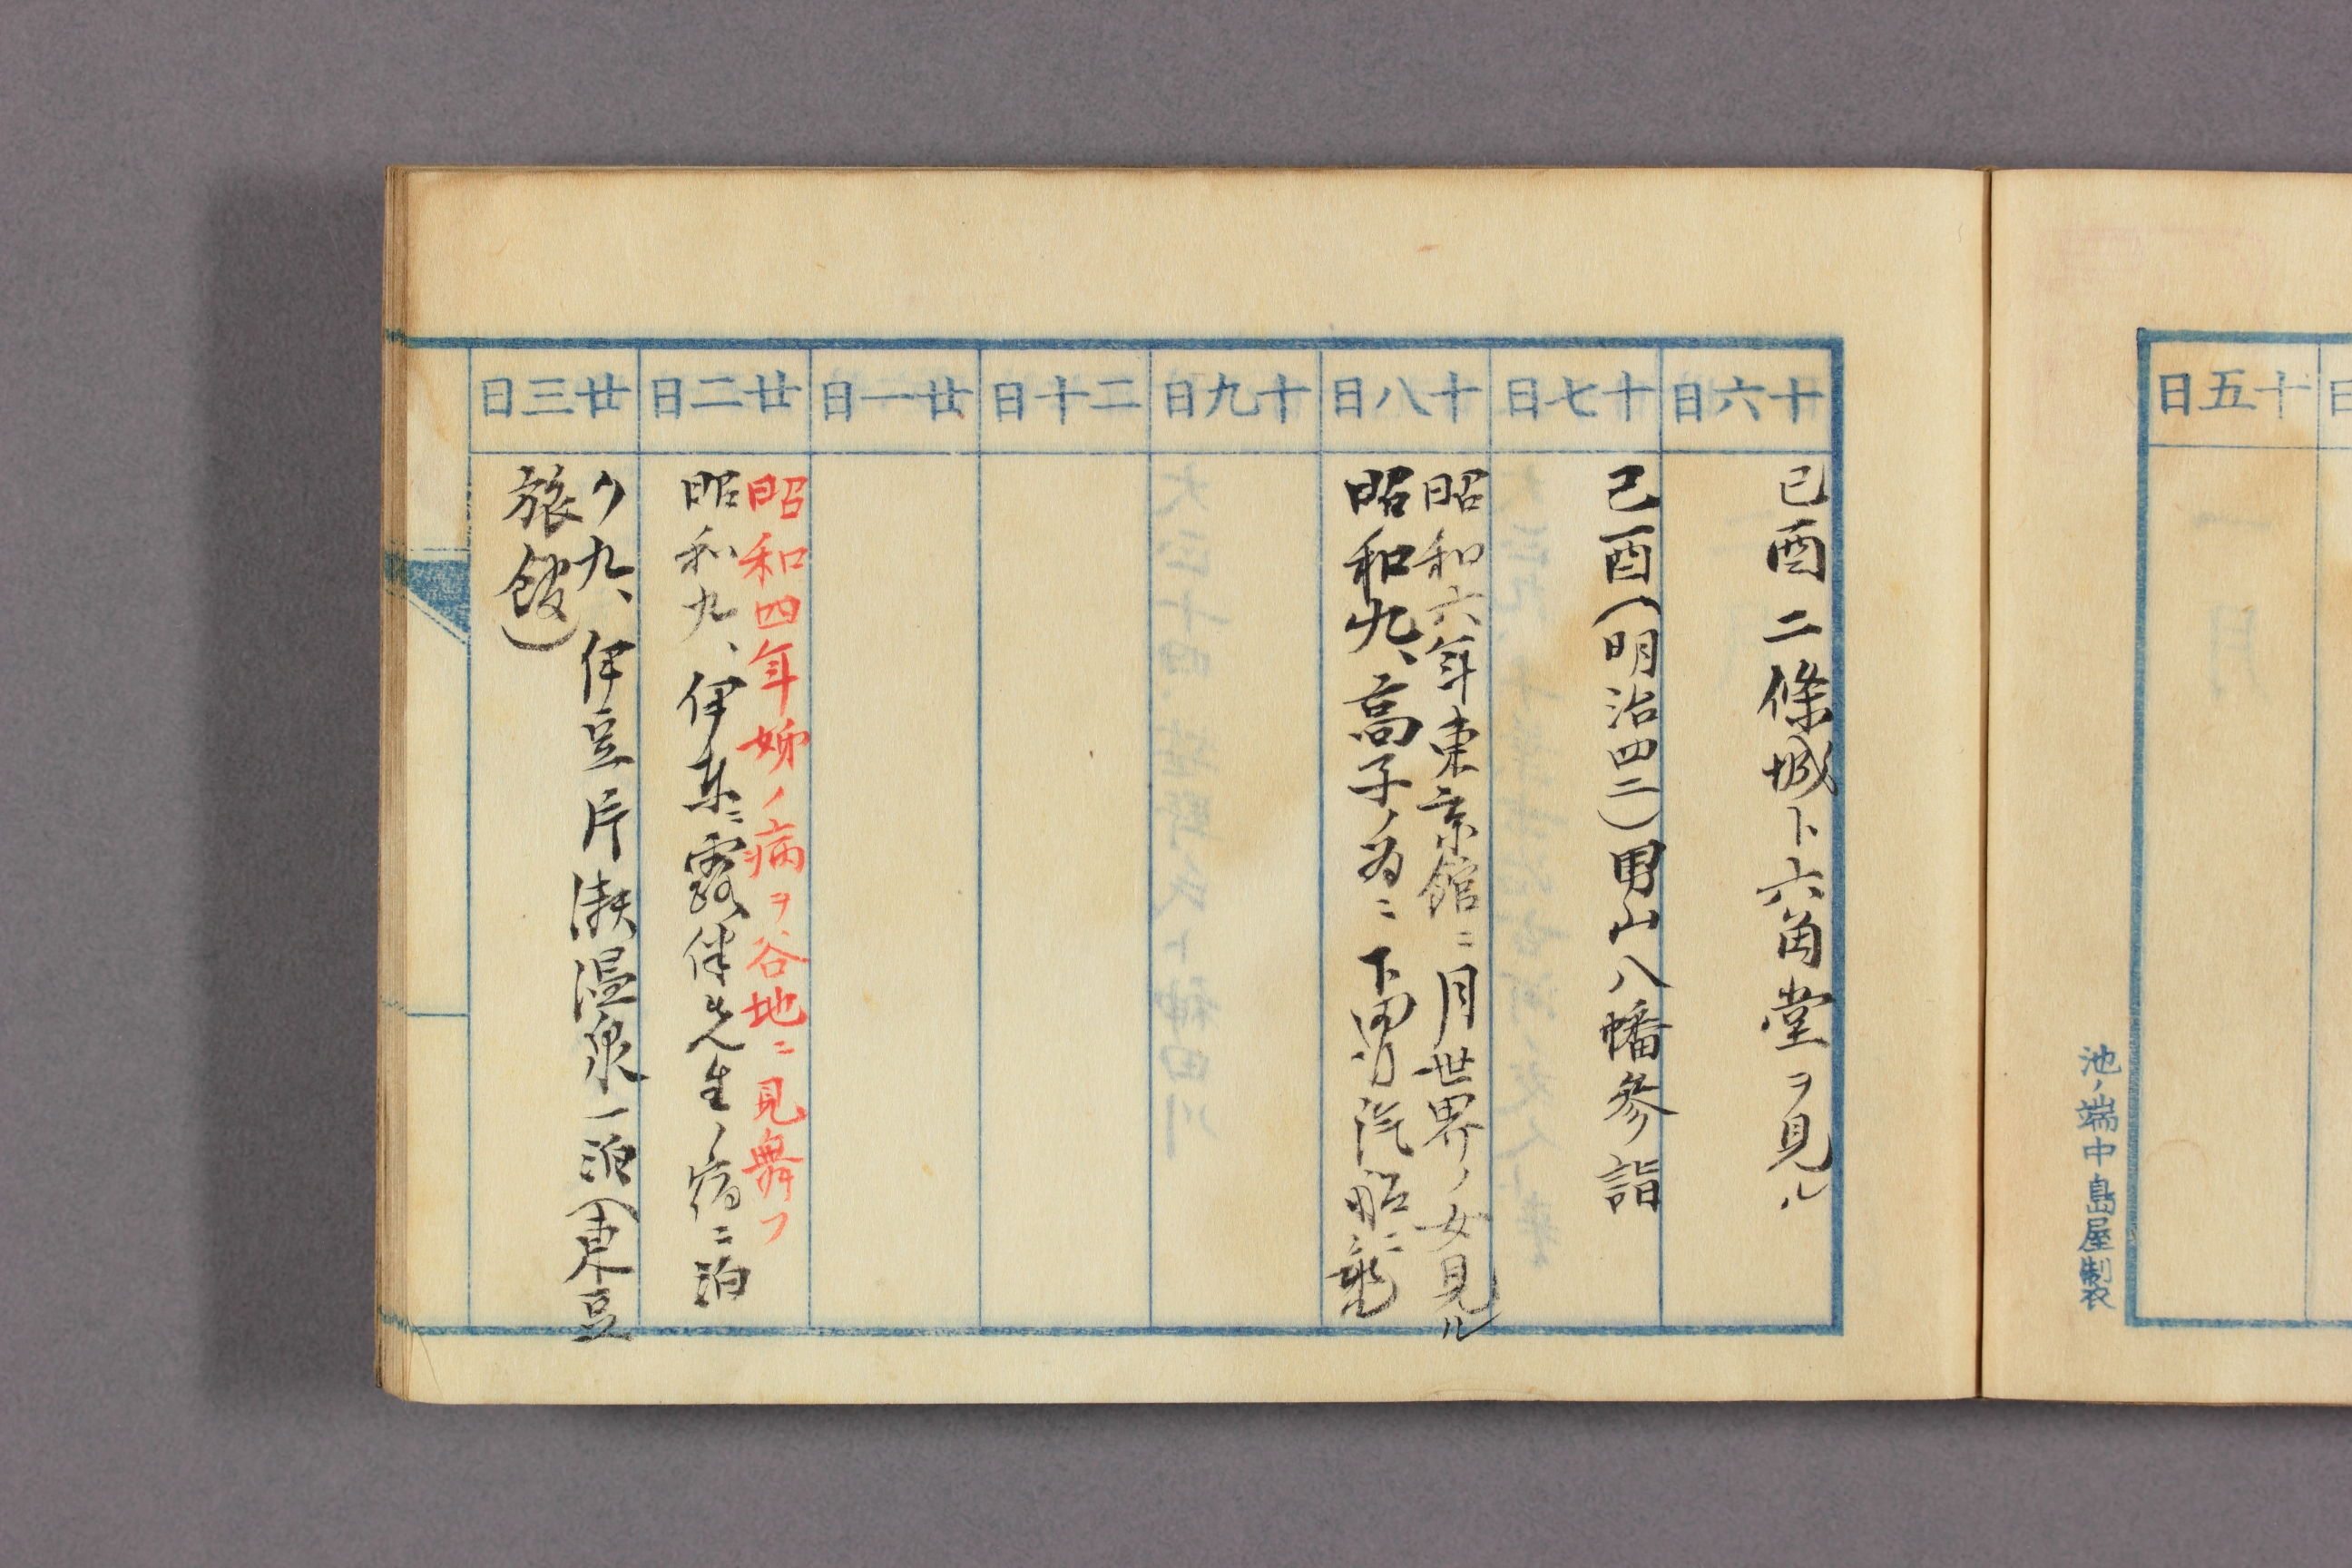 十五日
池ノ端中島屋製
十六日
己酉 二條城ト六角堂ヲ見ル
十七日
己酉(明治四二)男山八幡参詣
十八日
昭和六年東京館ニ月世界ノ女見ル
昭和九、高子ノ為ニ下田汽船ニ
十九日
二十日
廿一日
廿二日
昭和四年姉ノ病ヲ谷地ニ見舞フ
昭和九、伊東ニ露伴先生ノ宿ニ泊
廿三日
〃九、伊豆片瀬温泉一泊(東豆
旅館)